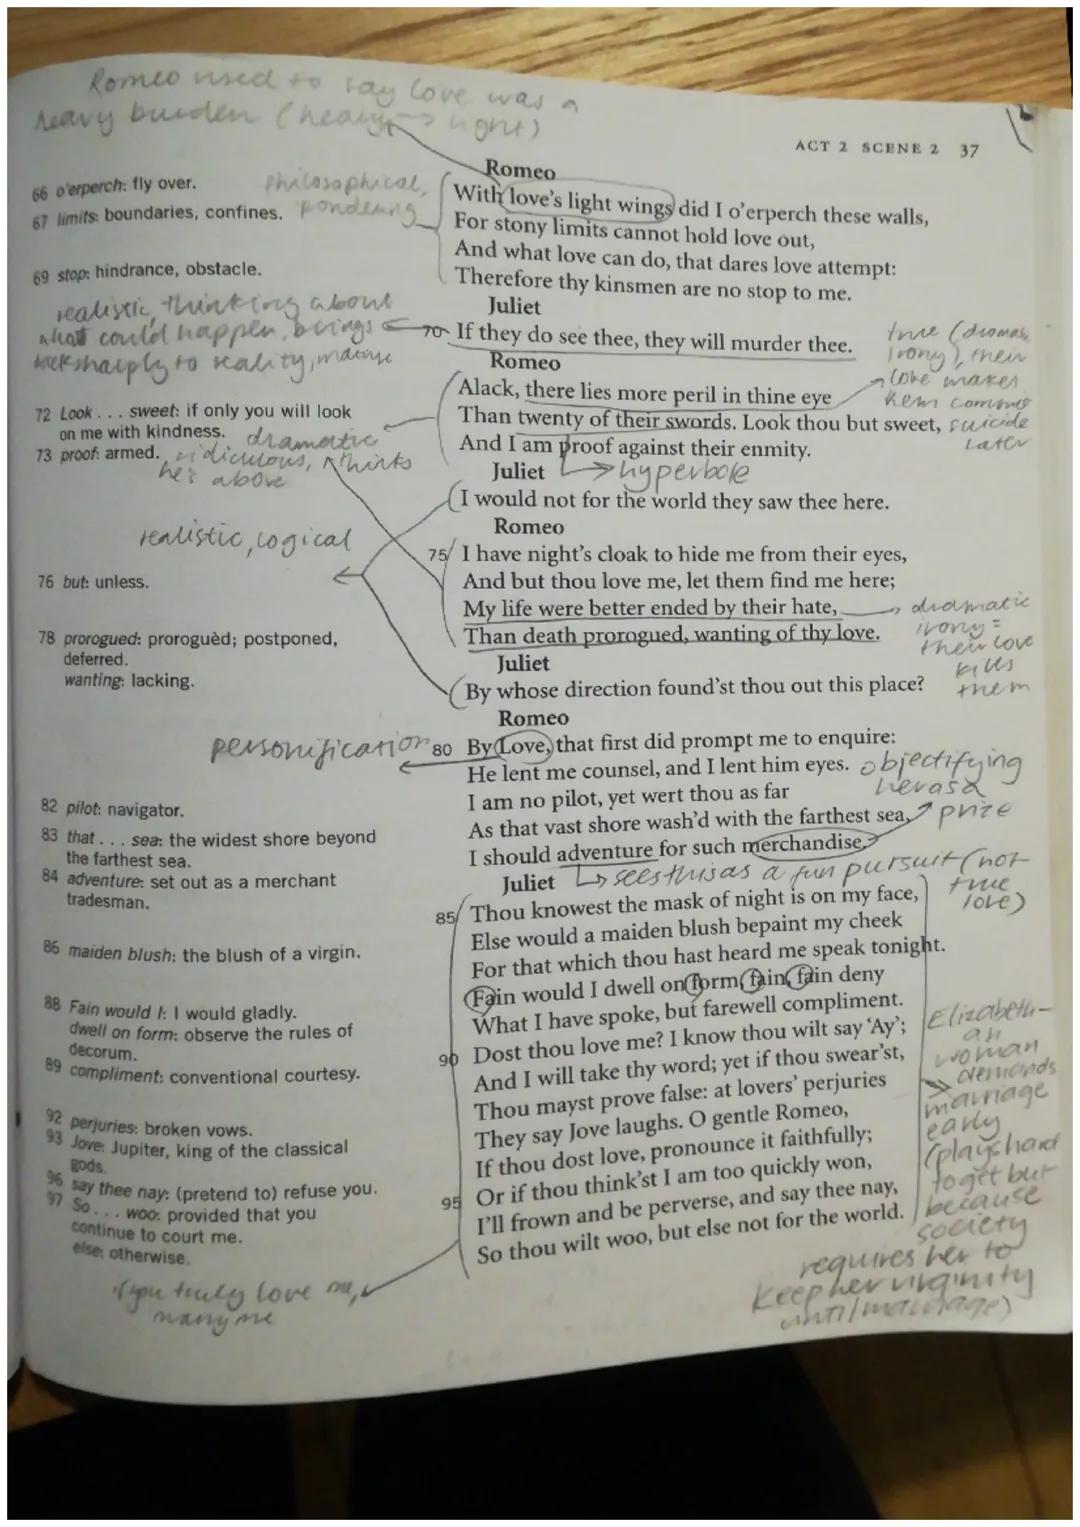 Romeo used to say love was a
heavy burden (heavy → light)
ACT 2 SCENE 2 37
Romeo
66 o'erperch: fly over.
philosophical,
pondering
67 limits: boundaries, confines.
With love's light wings did I o'erperch these walls,
For stony limits cannot hold love out,
And what love can do, that dares love attempt:
69 stop: hindrance, obstacle.
Therefore thy kinsmen are no stop to me.
Juliet
realistic, thinking about
what could happen, brings
back sharply to reality, mature
70 If they do see thee, they will murder thee.
true (dramatic
irony), their
love makes
them commit
suicide
later
Romeo
Alack, there lies more peril in thine eye
72 Look . . . sweet: if only you will look
on me with kindness.
Than twenty of their swords. Look thou but sweet,
73 proof: armed.
And I am proof against their enmity.
dramatic
ridiculous, thinks
he's above
Juliet
→ hyperbole
I would not for the world they saw thee here.
realistic, logical
Romeo
75 I have night's cloak to hide me from their eyes,
76 but: unless.
And but thou love me, let them find me here;
My life were better ended by their hate,
78 prorogued: proroguèd; postponed,
deferred.
wanting: lacking.
Than death prorogued, wanting of thy love.
dramatic
irony =
their love
kills
them
Juliet
By whose direction found'st thou out this place?
Romeo
personification
80 By Love, that first did prompt me to enquire:
He lent me counsel, and I lent him eyes.
objectifying
her as a
prize
82 pilot: navigator.
I am no pilot, yet wert thou as far
83 that . . . sea: the widest shore beyond
the farthest sea.
As that vast shore wash'd with the farthest sea,
84 adventure: set out as a merchant
tradesman.
I should adventure for such merchandise.
Juliet
→ sees this as a fun pursuit (not
true
love)
85 Thou knowest the mask of night is on my face,
86 maiden blush: the blush of a virgin.
Else would a maiden blush bepaint my cheek
For that which thou hast heard me speak tonight.
88 Fain would I: I would gladly.
dwell on form: observe the rules of
decorum.
Fain would I dwell on form, fain, fain deny
89 compliment: conventional courtesy.
What I have spoke, but farewell compliment.
90 Dost thou love me? I know thou wilt say 'Ay';
And I will take thy word; yet if thou swear'st,
92 perjuries: broken vows.
Thou mayst prove false: at lovers' perjuries
93 Jove: Jupiter, king of the classical
gods.
They say Jove laughs. O gentle Romeo,
If thou dost love, pronounce it faithfully;
95 Or if thou think'st I am too quickly won,
96 say thee nay: (pretend to) refuse you.
I'll frown and be perverse, and say thee nay,
97 So . . . woo: provided that you
continue to court me.
else: otherwise.
So thou wilt woo, but else not for the world.
Elizabeth-
an
woman
demands
marriage
early
(plays hard
to get but
because
society
requires her to
keep her virginity
until marriage)
if you truly love me,
marry me